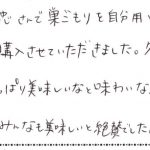 さんで巣ごもりを自分用
購入させていただきました。
っぱり美味しいなと味わいな
みんなも美味しいと絶賛でした